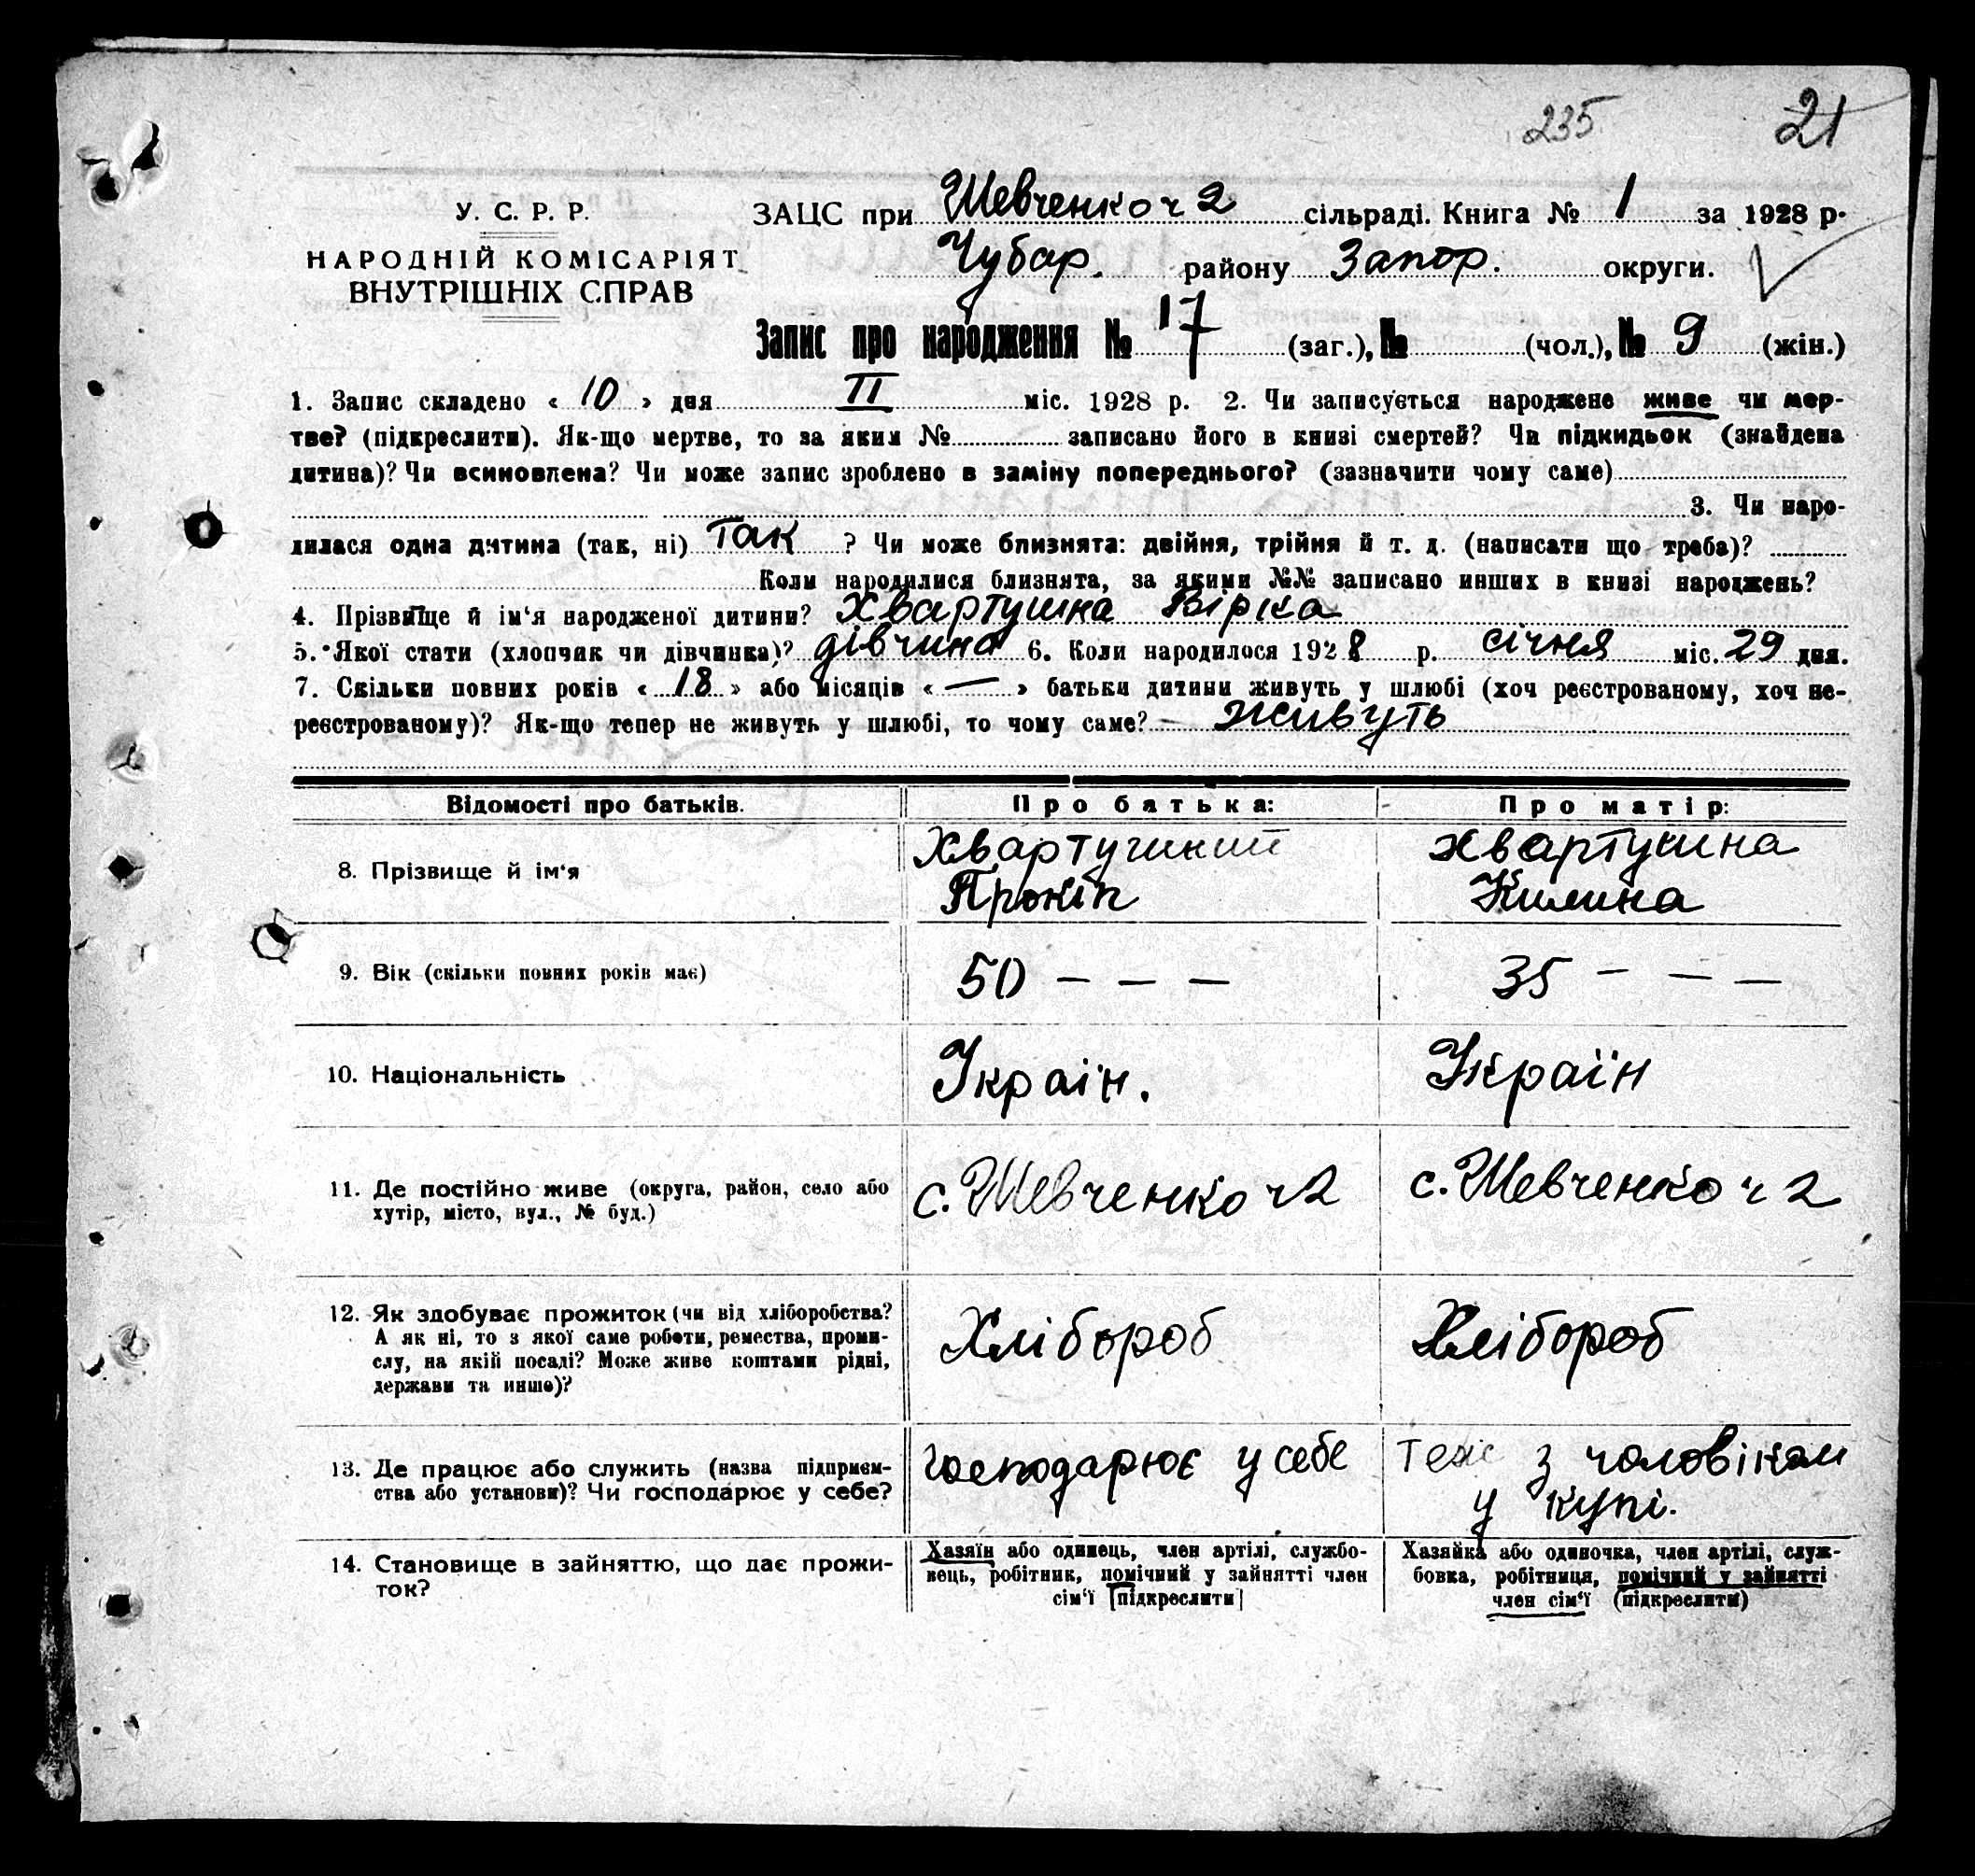 235 21
У. С. Р. Р.
НАРОДНІЙ КОМІСАРІЯТ
ВНУТРІШНІХ СПРАВ
ЗАЦС при Шевченко ч 2 сільраді. Книга № 1 за 1928 р.
Чубар. району Запор. округи.
Запис про народження № 17 (заг.), № (чол.), № 9 (жін.)
1. Запис складено « 10 » дня II міс. 1928 р. 2. Чи записується народжене живе чи мер-
тве? (підкреслити). Як-що мертве, то за яким № записано його в книзі смертей? Чи підкидьок (знайдена
дитина)? Чи всиновлена? Чи може запис зроблено в заміну попереднього? (зазначити чому саме)
3. Чи наро-
дилася одна дитина (так, ні) так ? Чи може близнята: двійня, трійня й т. д. (написати що треба)?
Коли народилися близнята, за якими №№ записано инших в книзі народжень?
4. Прізвище й ім‘я народженої дитини? Хвартушна Вірка
5. Якої стати (хлопчик чи дівчинка)? дівчина 6. Коли народилося 1928 р. січня міс. 29 дня.
7. Скільки повних років « 18 » або місяців « — » батьки дитини живуть у шлюбі (хоч реєстрованому, хоч не-
реєстрованому)? Як-що тепер не живуть у шлюбі, то чому саме? живуть
Відомості про батьків. Про батька: Про матір:
8. Прізвище й ім‘я Хвартушний Прокіп Хвартушна Килина
9. Вік (скільки повних років має) 50 — — — 35 — — —
10. Національність Україн. Україн
11. Де постійно живе (округа, район, село або
хутір, місто, вул., № буд.) с. Шевченко ч 2 с. Шевченко ч 2
12. Як здобуває прожиток (чи від хліборобства?
А як ні, то з якої саме роботи, ремества, проми-
слу, на якій посаді? Може живе коштами рідні,
держави та инше)? Хлібороб Хлібороб
13. Де працює або служить (назва підприєм-
ства або установи)? Чи господарює у себе? Господарює у себе Теж з чоловіком
у купі.
14. Становище в зайняттю, що дає прожи-
ток?
Хазяїн або одинець, член артілі, службо-
вець, робітник, помічний у зайнятті член
сім‘ї [підкреслити]
Хазяйка або одиночка, член артілі, служ-
бовка, робітниця, помічний у зайнятті
член сім‘ї (підкреслити)